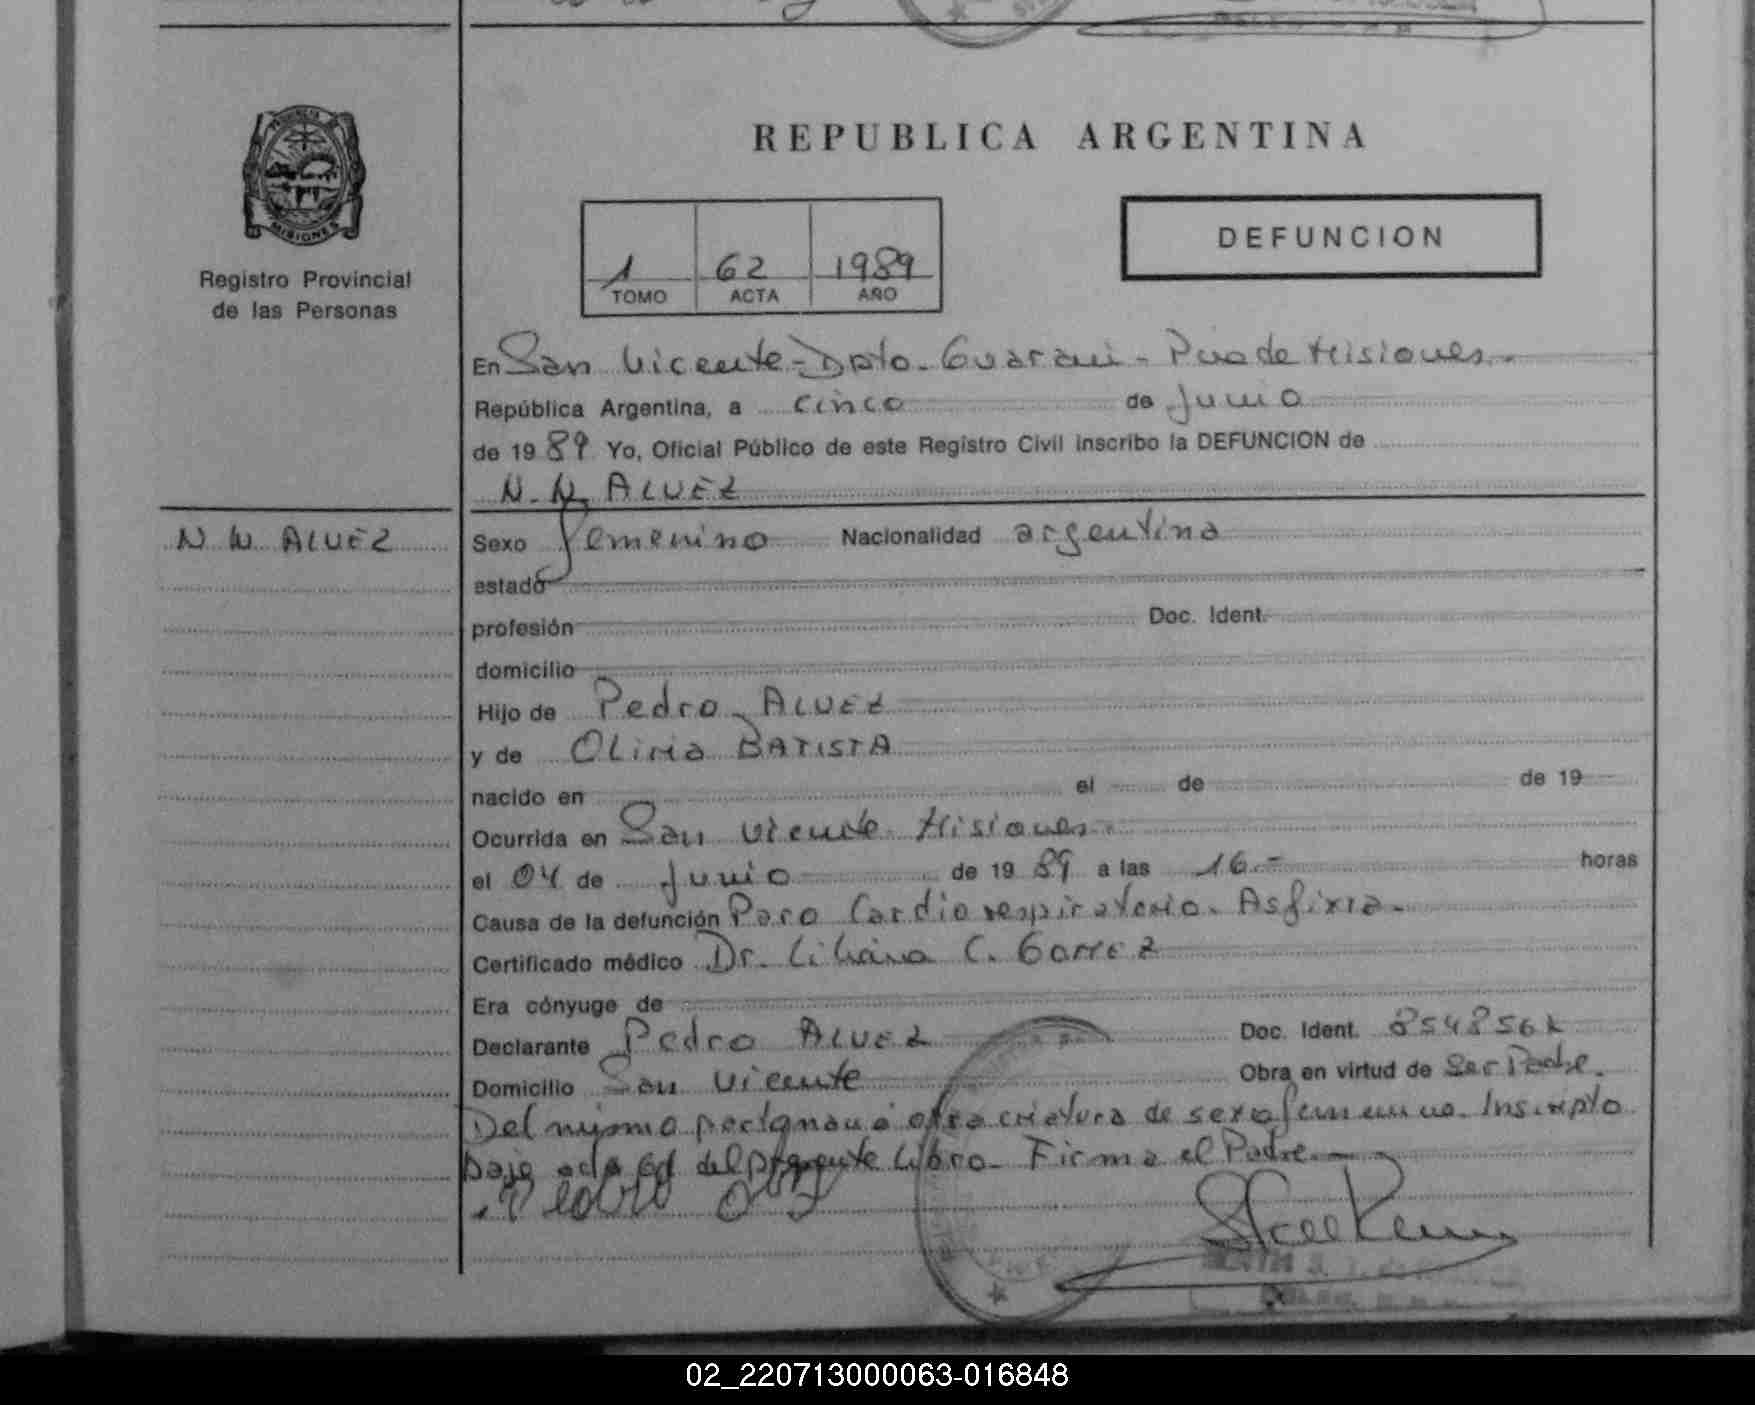 PROVINCIA DE
MISIONES
Registro Provincial
de las Personas
REPUBLICA ARGENTINA
1 62 1989
TOMO ACTA AÑO
DEFUNCION
En San Vicente - Dpto. Guarani - Pcia de Misiones.-
República Argentina, a cinco de Junio
de 1989 Yo, Oficial Público de este Registro Civil inscribo la DEFUNCION de
N. N. ALVEZ
N N ALVEZ
Sexo femenino Nacionalidad argentina
estado
profesión Doc. Ident.
domicilio
Hijo de Pedro ALVEZ
y de Oliria BATISTA
nacido en el de de 19
Ocurrida en San Vicente Misiones.
el 04 de Junio de 1989 a las 16.- horas
Causa de la defunción Paro Cardiorespiratorio. Asfixia.-
Certificado médico Dr. Liliana C.
Era cónyuge de
Declarante Pedro ALVEZ Doc. Ident.
Domicilio San Vicente Obra en virtud de Ser Padre.
Del mismo parto nació otra criatura de sexo femenino. Inscripto
bajo acta del presente Libro. Firma el Padre.-
02_220713000063-016848